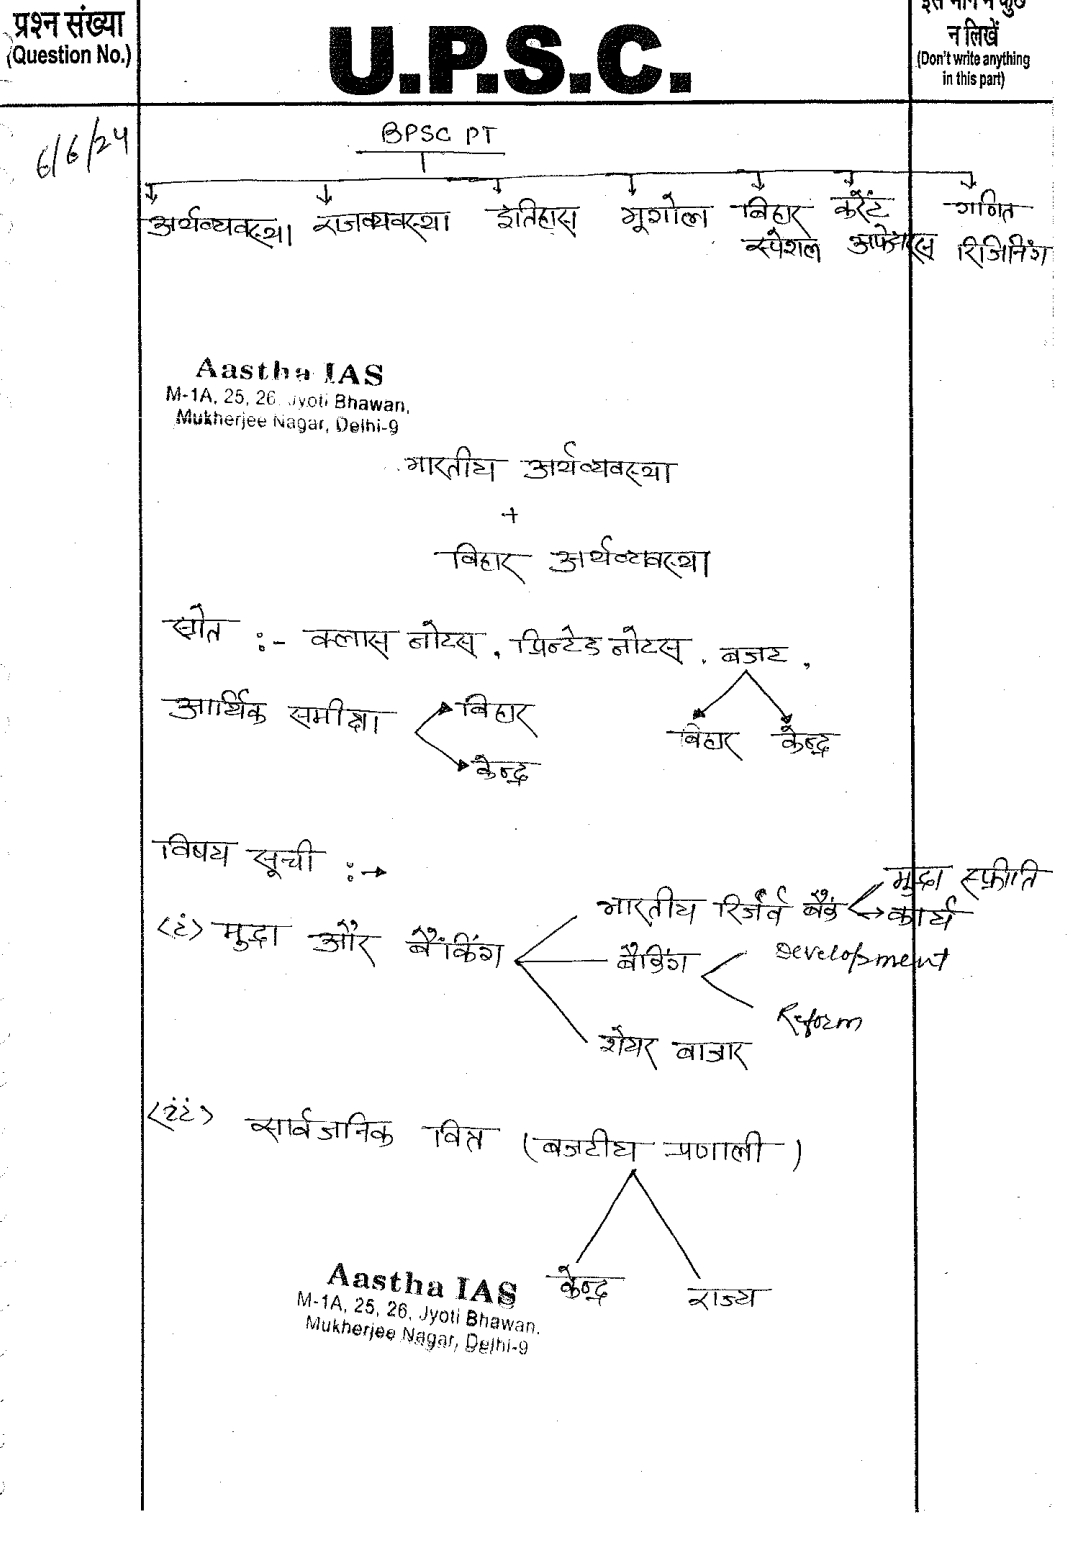 प्रश्न संख्या
(Question No.)
U.P.S.C.
न लिखें
(Don't write anything
in this part)
6/6/24
BPSC PT
अर्थव्यवस्था राजव्यवस्था इतिहास भूगोल बिहार करेंट गणित
स्पेशल अफेयर्स रिजिनिंग
Aastha IAS
M-1A, 25, 26, Jyoti Bhawan,
Mukherjee Nagar, Delhi-9
भारतीय अर्थव्यवस्था
+
बिहार अर्थव्यवस्था
स्रोत :- क्लास नोटस, प्रिन्टेड नोटस, बजट,
आर्थिक समीक्षा बिहार
केन्द्र
बिहार केन्द्र
विषय सूची :→
(i) मुद्रा और बैंकिंग
भारतीय रिजर्व बैंक
मुद्रा स्फीति
कार्य
बैंकिंग
Development
Reform
शेयर बाजार
(ii) सार्वजनिक वित्त (बजटीय प्रणाली)
केन्द्र राज्य
Aastha IAS
M-1A, 25, 26, Jyoti Bhawan,
Mukherjee Nagar, Delhi-9